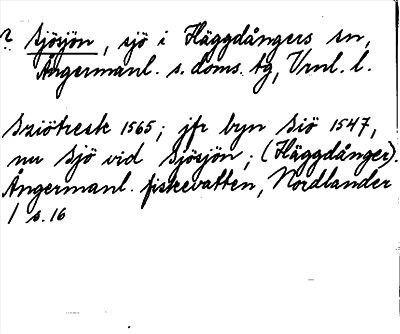 ? Sjösjön, sjö i Häggdångers sn,
Ångermanl. s. doms. tg, Vrnl. l.
Sziötresk 1565; jfr byn Siö 1547,
nu Sjö vid Sjösjön; (Häggdånger).
Ångermanl. fiskevatten, Nordlander
1 s. 16